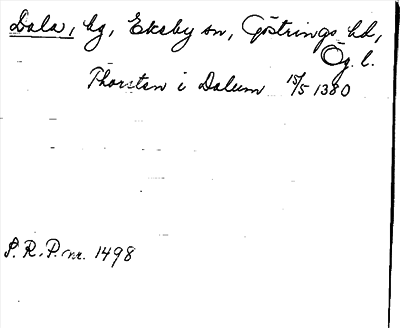 Dala, by, Ekeby sn, Göstrings hd,
Ög. l.
Thorsten i Dalum 15/5 1380
S.R.P. nr. 1498